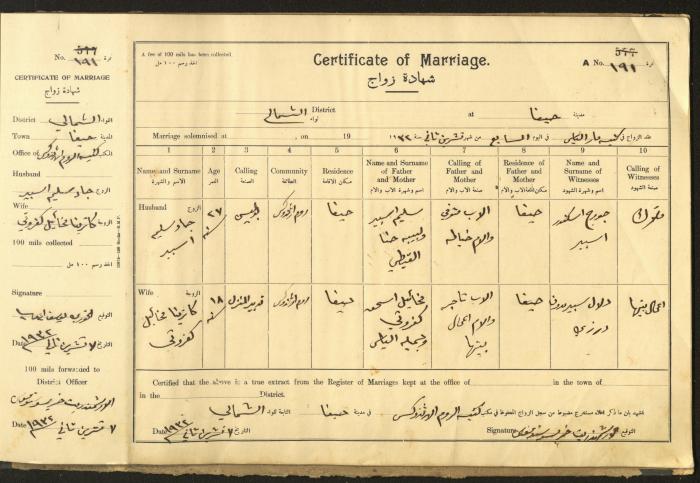 No. 577 نمرة
١٩١
CERTIFICATE OF MARRIAGE
شهادة زواج
District الشمالي لواء
Town حيفا المدينة
Office of كنيسة الروم الارثوذكس المكتب
Husband الزوج
جاد سليم اسبير
Wife الزوجة
كاترينا مخائيل كفروني
100 mils collected
اخذ رسم ١٠٠ مل
Signature التوقيع
الخوري يوسف
Date ٧ تشرين ثاني ١٩٣٢ التاريخ
100 mils forwarded to
District Officer
Date ٧ تشرين ثاني ١٩٣٢
A fee of 100 mils has been collected
اخذ رسم ١٠٠ مل
Certificate of Marriage.
شهادة زواج
A No. 577 نمرة
١٩١
الشمالي District لواء at حيفا مدينة
Marriage solemnised at , on 19 ١٩٣٢ سنة تشرين ثاني من شهر السابع في اليوم كنيسة مار الياس عقد الزواج في
1 2 3 4 5 6 7 8 9 10
Name and Surname الاسم والشهرة
Age العمر
Calling الصنعة
Community الطائفة
Residence مكان الاقامة
Name and Surname of Father and Mother اسم وشهرة الاب والام
Calling of Father and Mother صنعة الاب والام
Residence of Father and Mother مكان اقامة الاب والام
Name and Surname of Witnesses اسم وشهرة الشهود
Calling of Witnesses صنعة الشهود
Husband الزوج
جاد سليم اسبير
٢٧ سنة
روم ارثوذكس
حيفا
سليم اسبير
ولبيبه حنا
القبطي
الاب متوفي
والام خياطه
حيفا
جورج اسكندر
اسبير
Wife الزوجة
كاترينا مخائيل
كفروني
١٨ سنة
تدبير المنزل
روم ارثوذكس
حيفا
مخائيل اسعد
كفروني
وجميله الياس
الاب تاجر
والام اعمال
بيتها
حيفا
اعمال بيتها
Certified that the above is a true extract from the Register of Marriages kept at the office of in the town of
in the District.
نشهد بان ما ذكر اعلاه مستخرج مضبوطا من سجل الزواج المحفوظ في مكتب كنيسة الروم الارثوذكس في مدينة حيفا التابعة للواء الشمالي
Date ٧ تشرين ثاني ١٩٣٢ التاريخ
Signature التوقيع